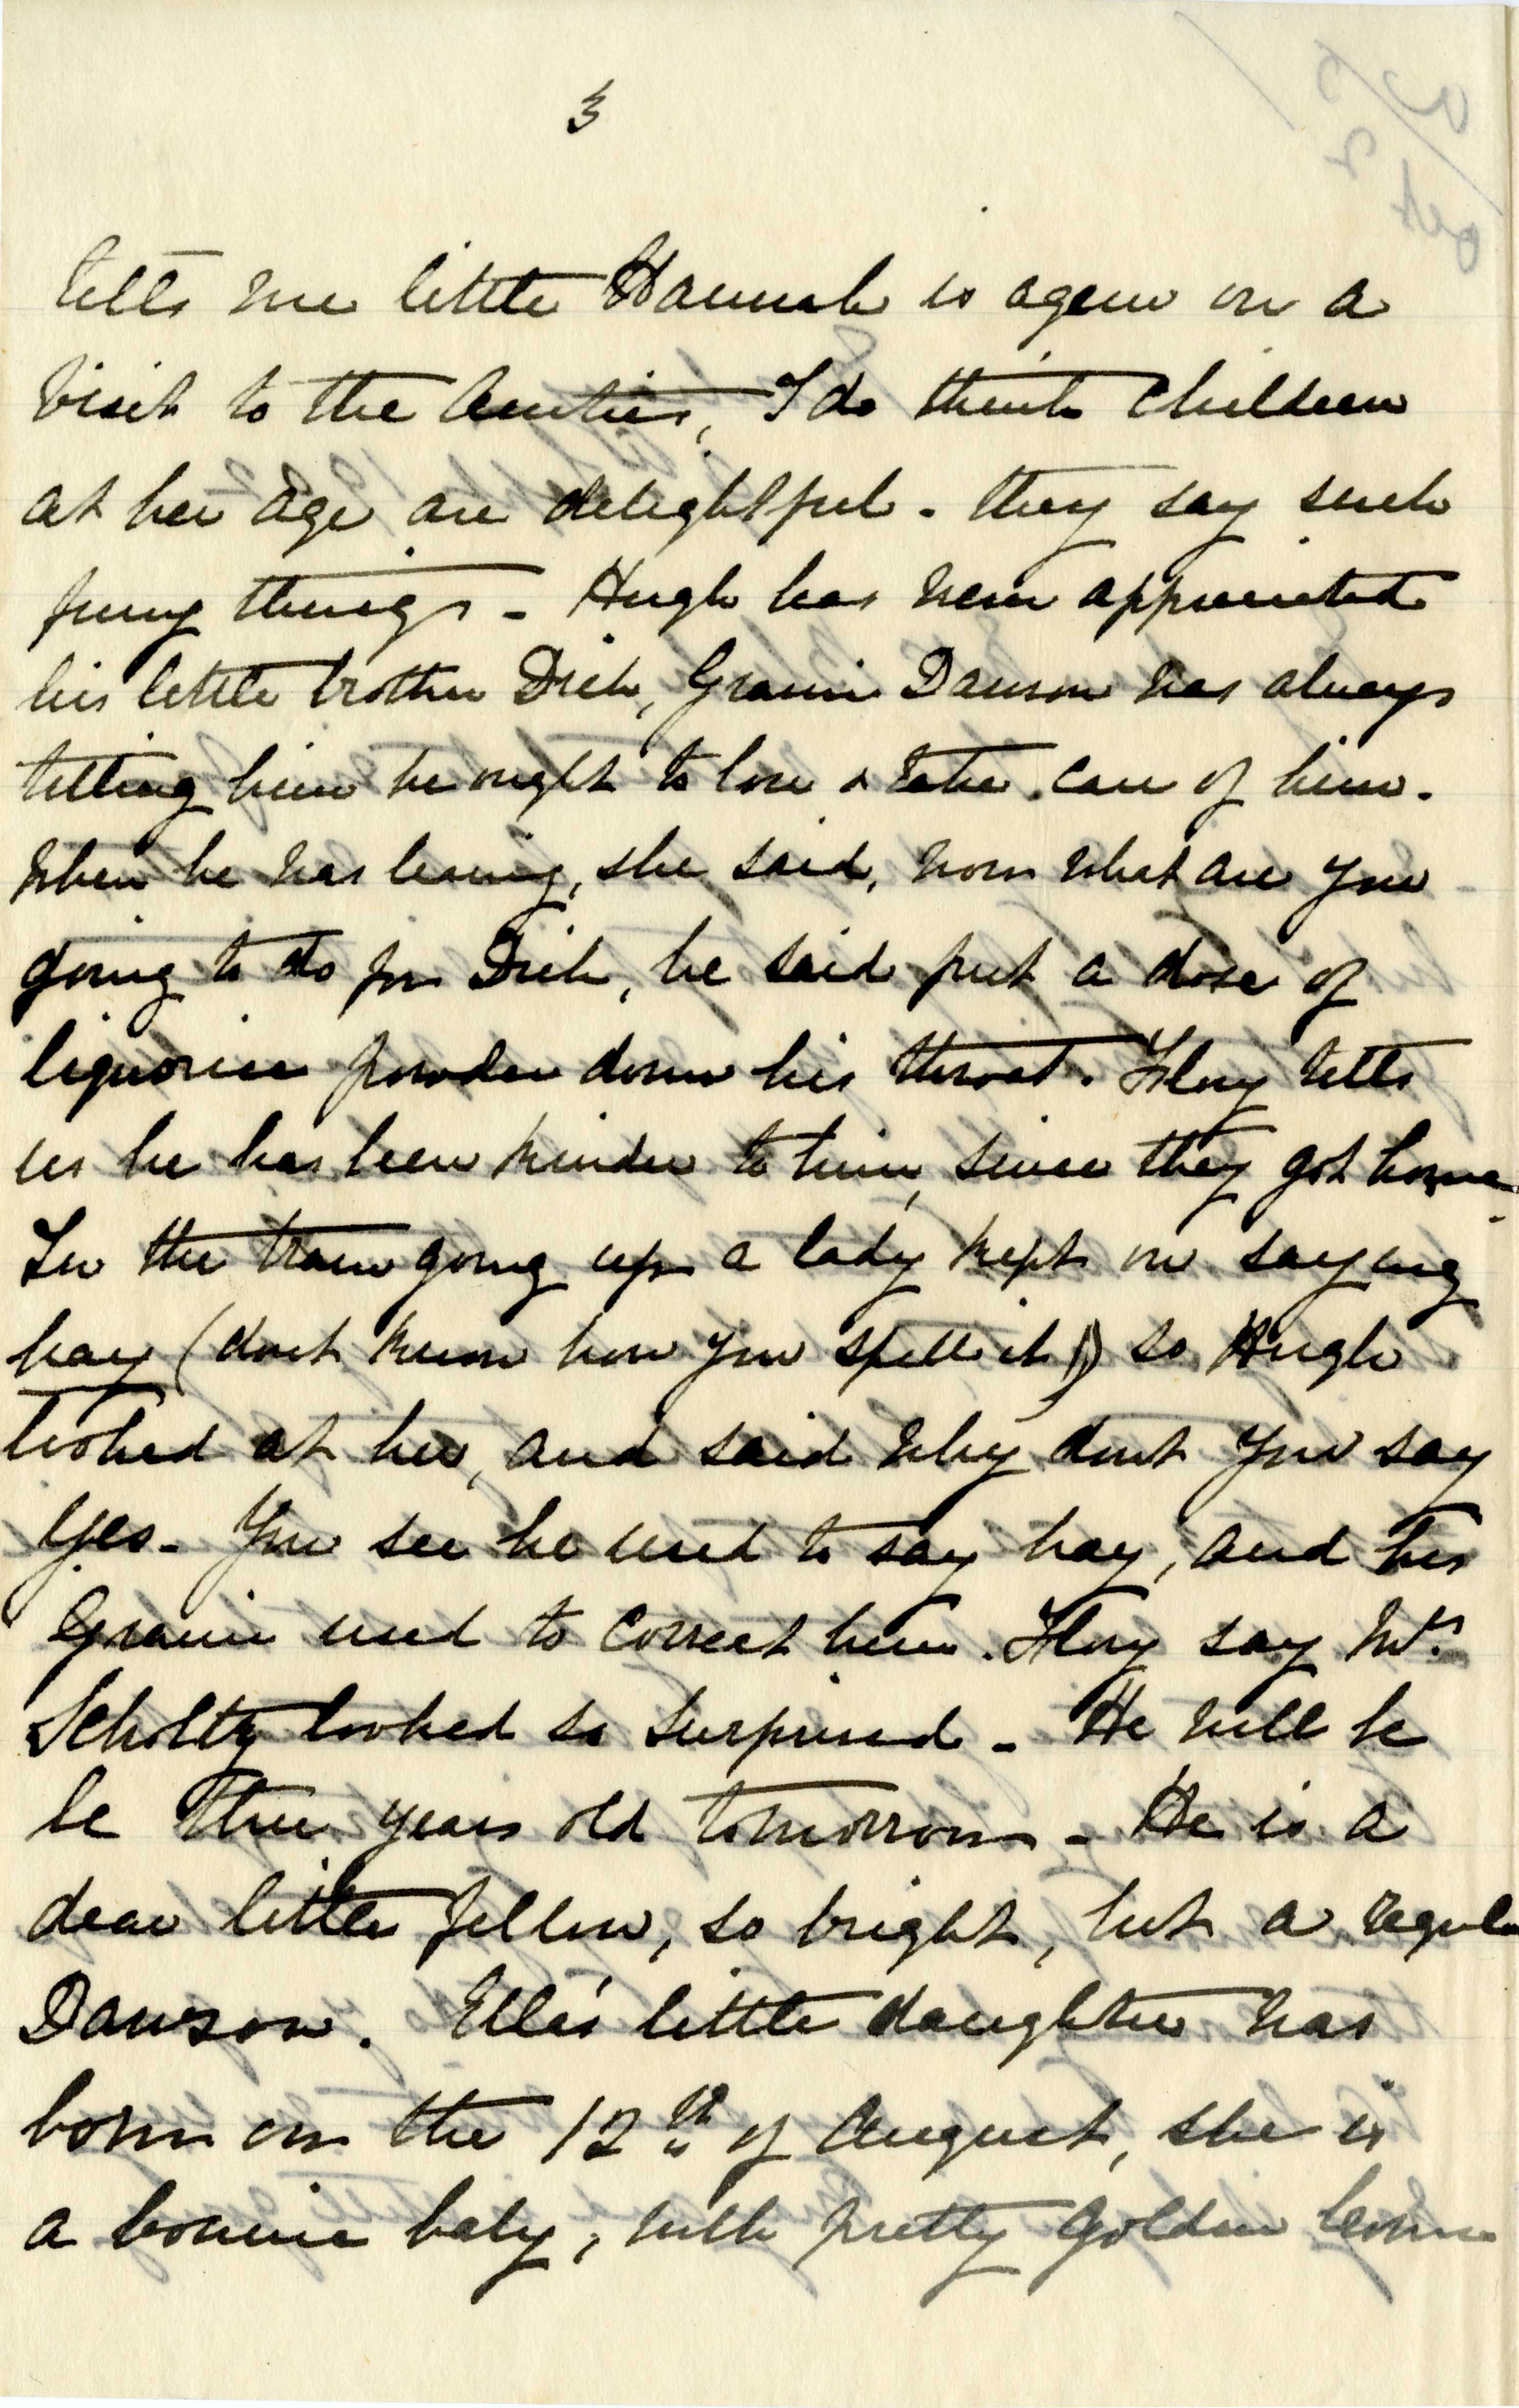 3
tells me little Hannah is again on a
visit to the Aunties, I do think children
at her age are delightful - they say such
funny things - Hugh has never appreciated
his little brother Dick, Grannie Dawson was always
telling him he ought to love & take care of him.
When he was leaving, she said, now what are you
going to do for Dick, he said put a dose of
liquorice powder down his throat. Flory tells
us he has been kinder to him, since they got home.
In the train going up a lady kept on saying
hay (dont know how you spell it) so Hugh
looked at her, and said why dont you say
yes - You see he used to say hay, and his
Grannie used to correct him. Flory say Mrs
Scholtz looked so surprised - He will be
be three years old tomorrow - He is a
dear little fellow, so bright, but a regular
Dawson. Ella's little daughter was
born on the 12th of August, she is
a bonnie baby, with pretty golden brown